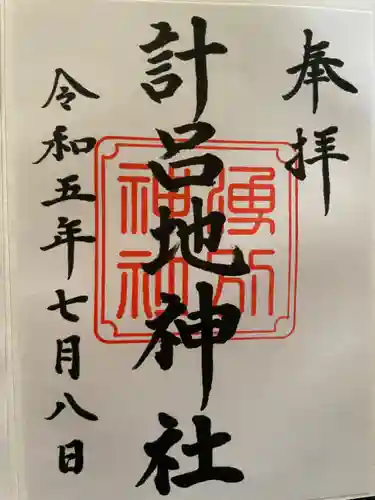 奉拝
計呂地神社
湧別
神社
令和五年七月八日